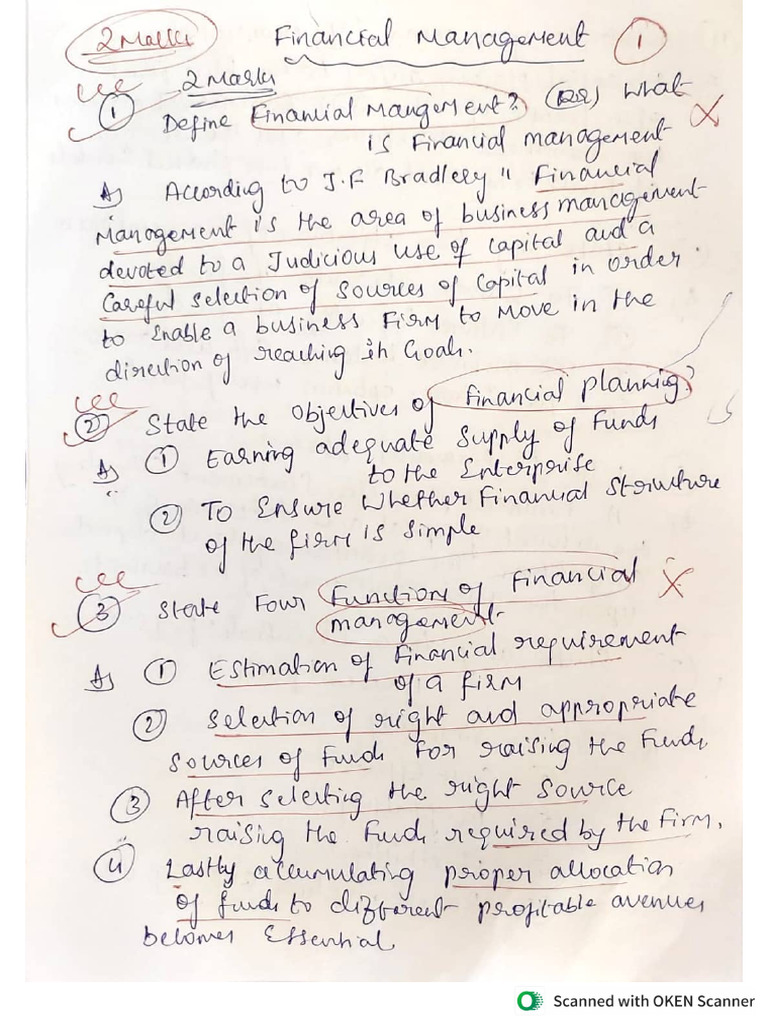 2 Marks Financial Management 1
2 Marks
1 Define Financial Mangement? (OR) What
is Financial management
A) According to J.F Bradlery " Financial
Management is the area of business management
devoted to a Judicious use of capital and a
Careful selection of sources of Capital in order
to Enable a business Firm to Move in the
direction of reaching its Goals.
2 State the objectives of financial planning?
A) 1 Earning adequate supply of Funds
to the Enterprise
2 To Ensure whether Financial Structure
of the firm is simple
3 State Four Functions of Financial
management
A) 1 Estimation of Financial requirement
of a firm
2 Selection of right and appropriate
sources of Funds for raising the Funds
3 After selecting the right source
raising the Funds required by the Firm,
4 Lastly accumulating proper allocation
of funds to different profitable avenues
becomes Essential
Scanned with OKEN Scanner